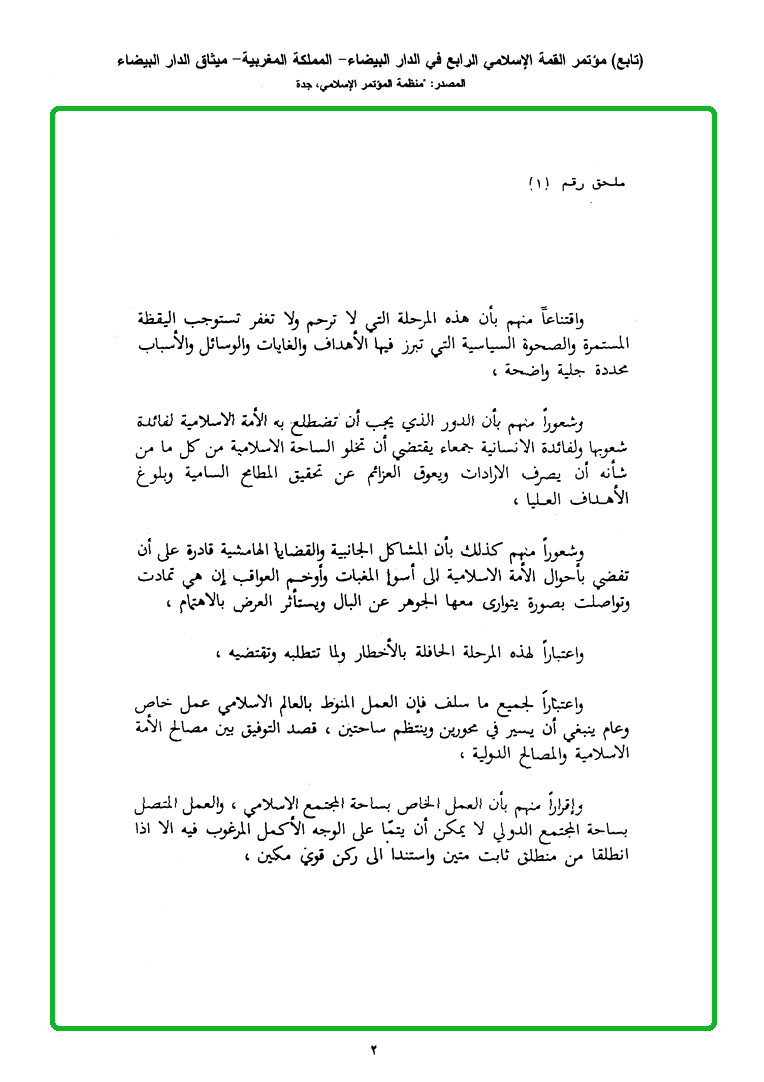 (تابع) مؤتمر القمة الإسلامي الرابع في الدار البيضاء- المملكة المغربية- ميثاق الدار البيضاء
المصدر: "منظمة المؤتمر الإسلامي، جدة
ملحق رقم (١)
واقتناعاً منهم بأن هذه المرحلة التي لا ترحم ولا تغفر تستوجب اليقظة
المستمرة والصحوة السياسية التي تبرز فيها الأهداف والغايات والوسائل والأسباب
محددة جلية واضحة ،
وشعوراً منهم بأن الدور الذي يجب أن تضطلع به الأمة الاسلامية لفائدة
شعوبها ولفائدة الانسانية جمعاء يقتضي أن تخلو الساحة الاسلامية من كل ما من
شأنه أن يصرف الارادات ويعوق العزائم عن تحقيق المطامح السامية وبلوغ
الأهداف العليا ،
وشعوراً منهم كذلك بأن المشاكل الجانبية والقضايا الهامشية قادرة على أن
تفضي بأحوال الأمة الاسلامية الى أسوإ المغبات وأوخم العواقب إن هي تمادت
وتواصلت بصورة يتوارى معها الجوهر عن البال ويستأثر العرض بالاهتمام ،
واعتباراً لهذه المرحلة الحافلة بالأخطار ولما تتطلبه وتقتضيه ،
واعتباراً لجميع ما سلف فإن العمل المنوط بالعالم الاسلامي عمل خاص
وعام ينبغي أن يسير في محورين وينتظم ساحتين ، قصد التوفيق بين مصالح الأمة
الاسلامية والمصالح الدولية ،
وإقراراً منهم بأن العمل الخاص بساحة المجتمع الاسلامي ، والعمل المتصل
بساحة المجتمع الدولي لا يمكن أن يتمّا على الوجه الأكمل المرغوب فيه الا اذا
انطلقا من منطلق ثابت متين واستندا الى ركن قويّ مكين ،
٢